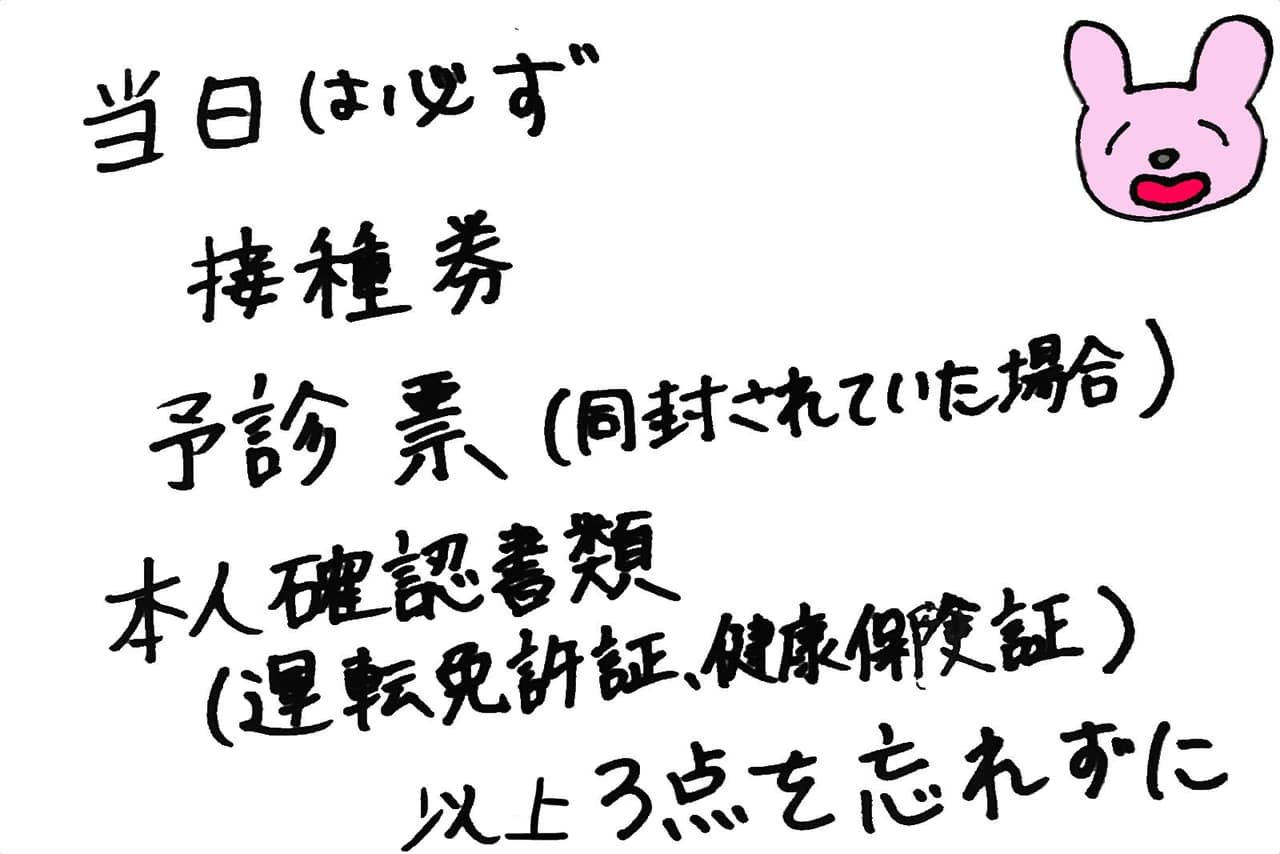 当日は必ず
接種券
予診票(同封されていた場合)
本人確認書類
(運転免許証、健康保険証)
以上3点を忘れずに